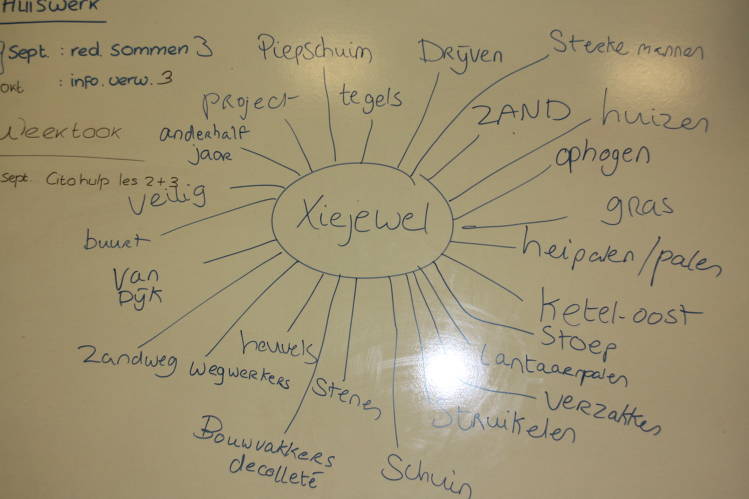 Huiswerk
Sept. : red. sommen 3
okt : info. verw. 3
Weektaak
Sept. Citohulp les 2+3
Xiejewel
Piepschuim
Drijven
Sterke mannen
project
tegels
ZAND
huizen
anderhalf
jaar
ophogen
veilig
gras
buurt
heipalen/palen
Van
Dijk
Ketel-oost
Stoep
Zandweg
wegwerkers
heuvels
Stenen
Lantaarenpalen
verzakken
Struikelen
Bouwvakkers
decolleté
Schuin